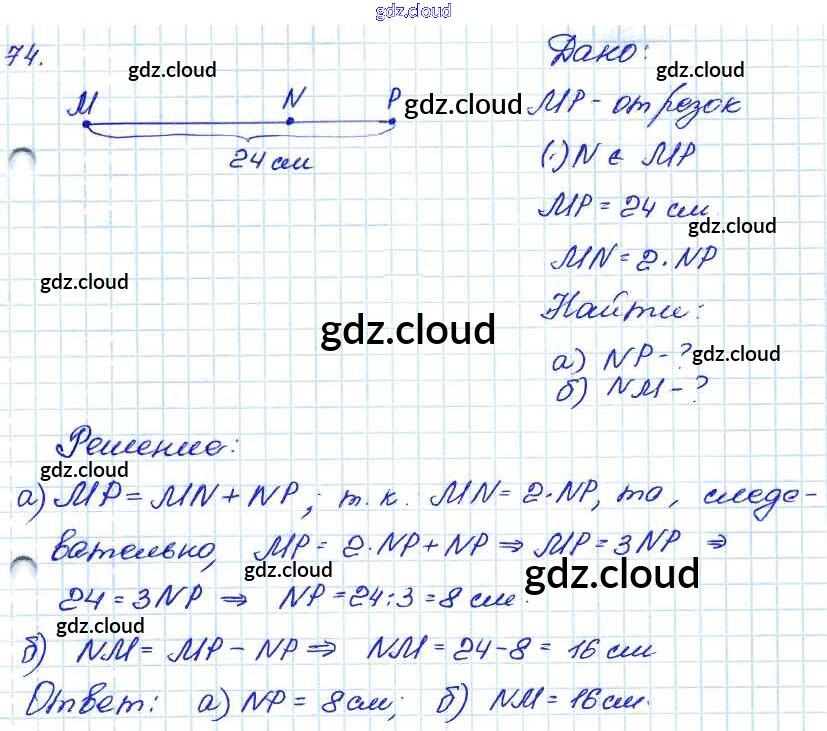 gdz.cloud
74.
Дано:
gdz.cloud
gdz.cloud
M N P
gdz.cloud
MP - отрезок
24 см
(·) N ∈ MP
MP = 24 см
gdz.cloud
MN = 2·NP
gdz.cloud
Найти:
gdz.cloud
а) NP - ?
gdz.cloud
б) NM - ?
Решение:
gdz.cloud
а) MP = MN + NP, т.к. MN = 2·NP, то, следо-
вательно, MP = 2·NP + NP ⇒ MP = 3NP ⇒
gdz.cloud
gdz.cloud
24 = 3NP ⇒ NP = 24:3 = 8 см.
gdz.cloud
б) NM = MP - NP ⇒ NM = 24-8 = 16 см
Ответ: а) NP = 8см; б) NM = 16см.